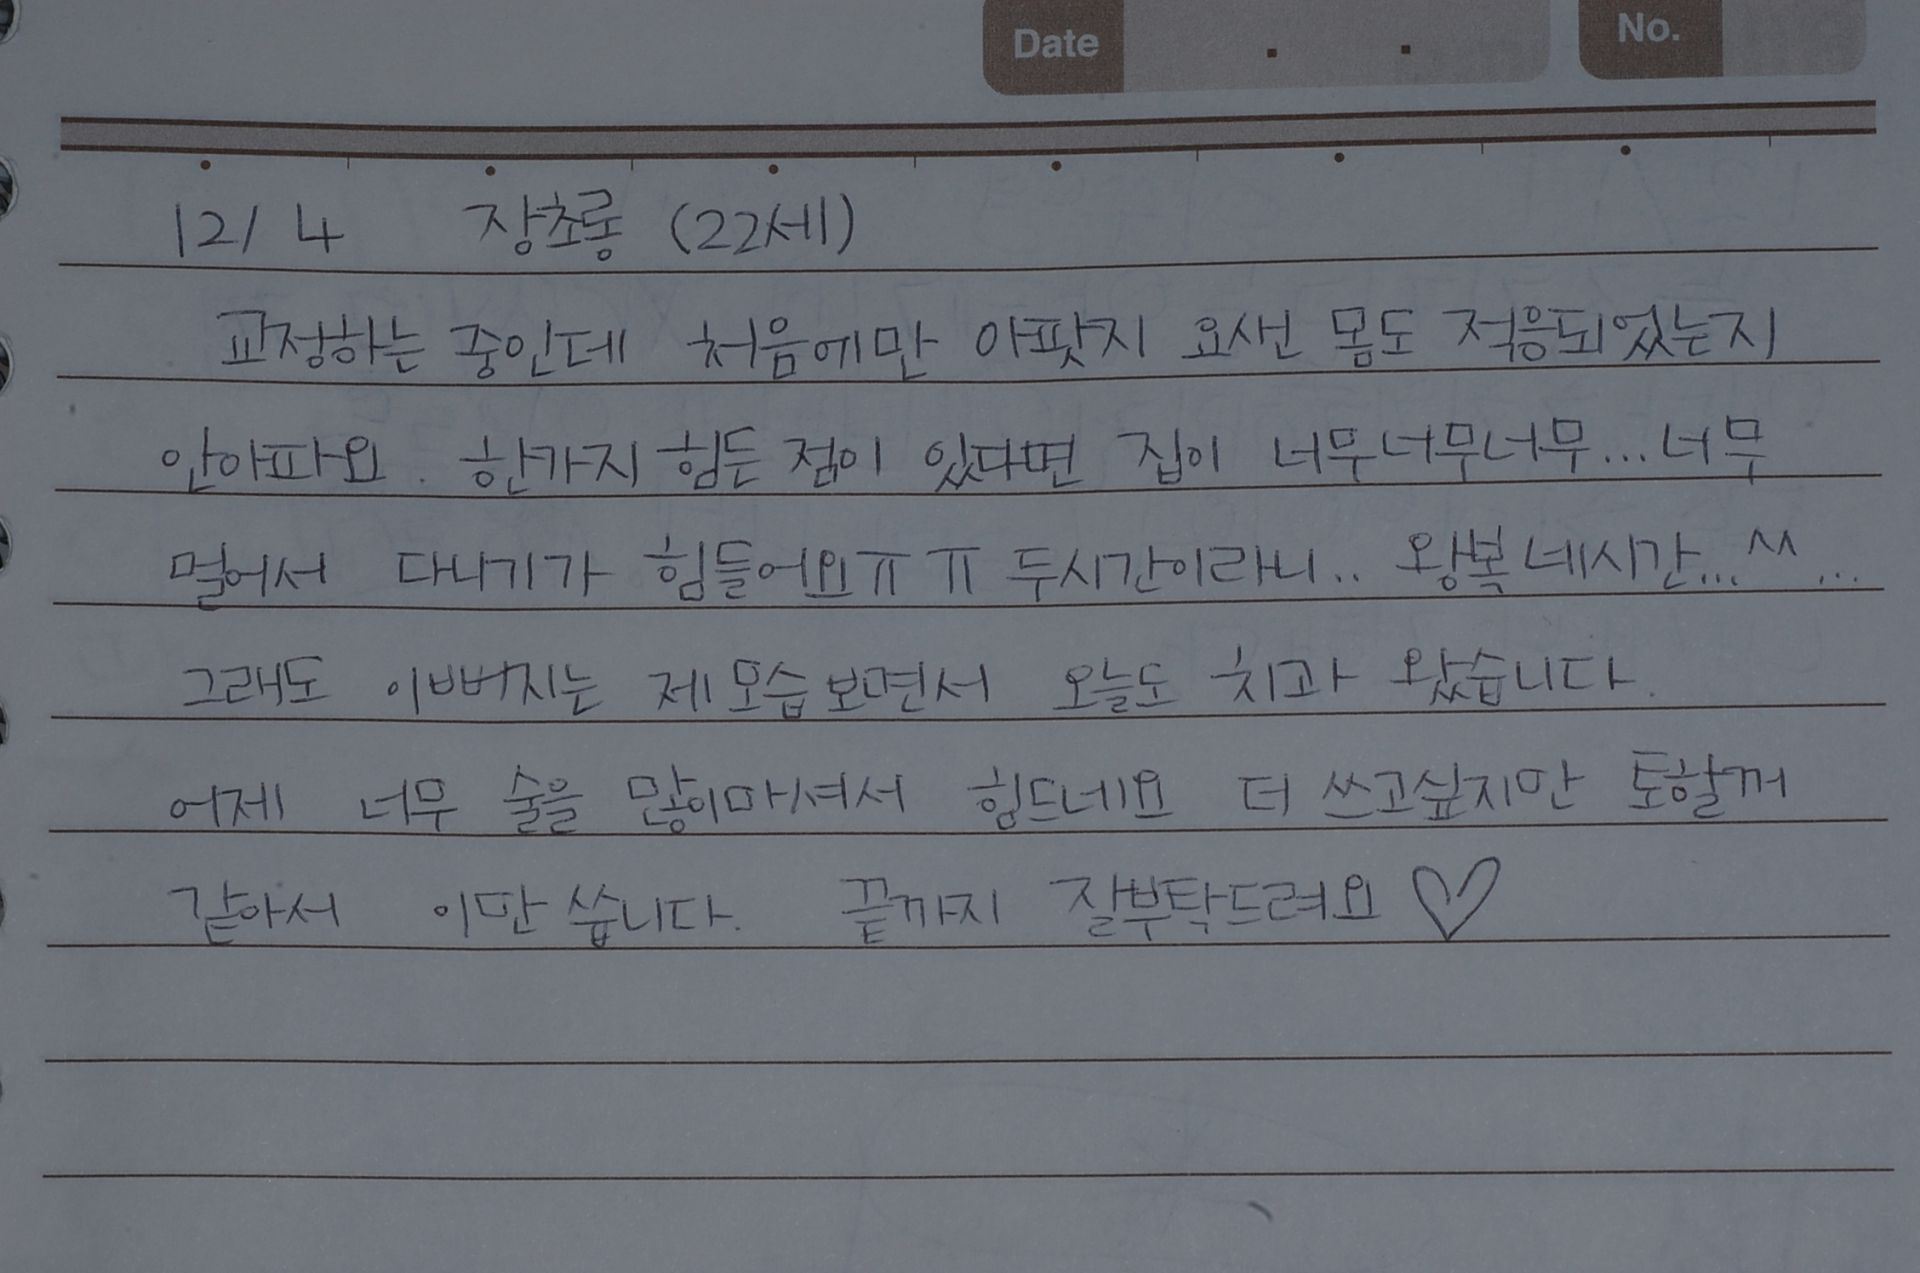 Date . . No.
12/4 장초롱 (22세)
교정하는 중인데 처음에만 아팟지 요샌 몸도 적응되었는지
안아파요. 한가지 힘든 점이 있다면 집이 너무너무너무...너무
멀어서 다니기가 힘들어요ㅠㅠ 두시간이라니.. 왕복 네시간...^^...
그래도 이뻐지는 제모습보면서 오늘도 치과 왔습니다.
어제 너무 술을 많이마셔서 힘드네요 더 쓰고싶지만 토할꺼
같아서 이만 씁니다. 끝까지 잘부탁드려요♡